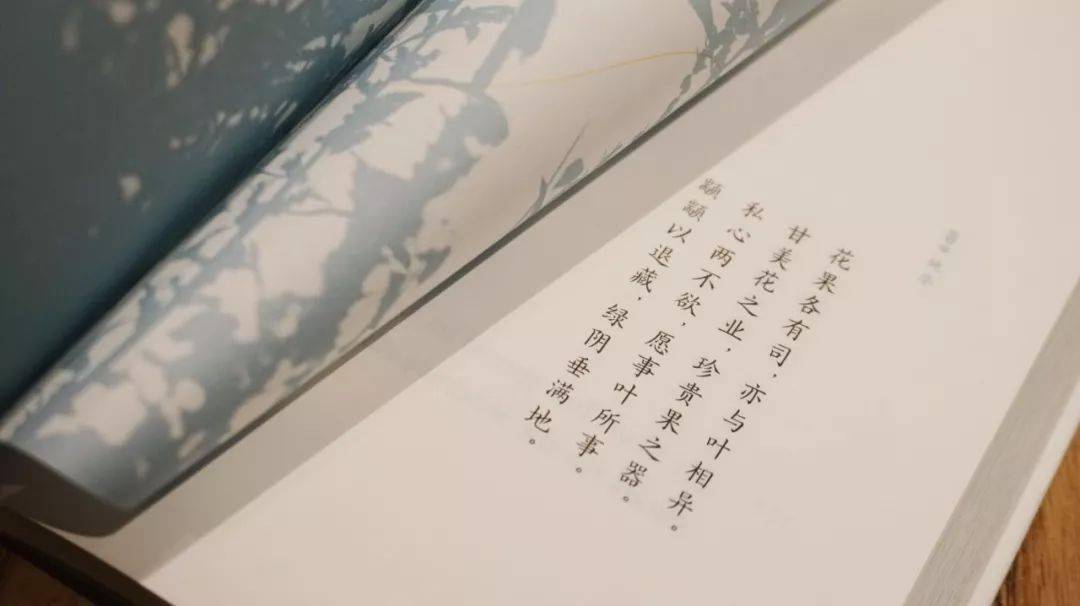 花果各有司，亦与叶相异。
甘美花之业，珍贵果之器。
私心两不欲，愿事叶所事。
颛颛以退藏，绿阴垂满地。